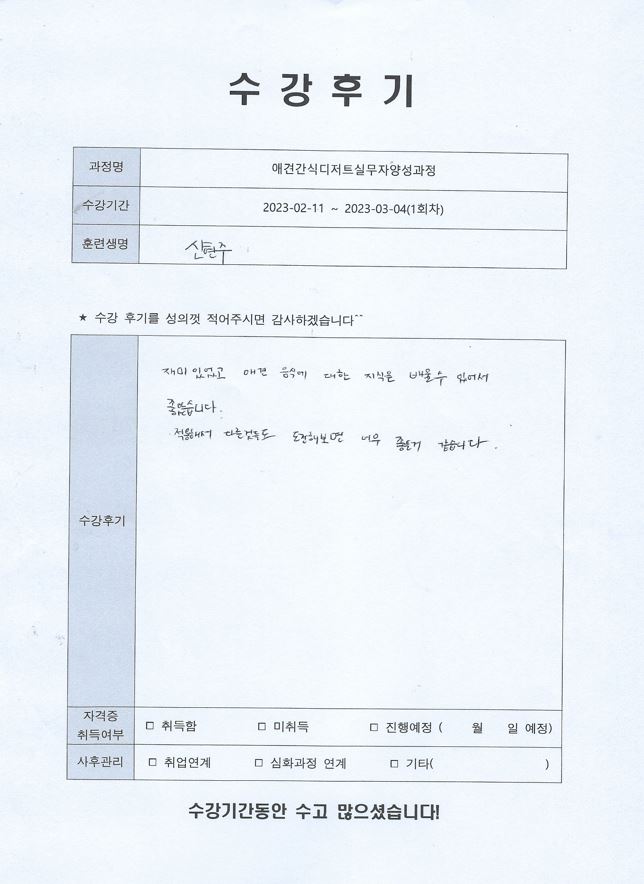 수 강 후 기
과정명 애견간식디저트실무자양성과정
수강기간 2023-02-11 ~ 2023-03-04(1회차)
훈련생명 신현주
★ 수강 후기를 성의껏 적어주시면 감사하겠습니다^^
재미있었고 애견 음식에 대한 지식을 배울수 있어서
좋았습니다.
적용해서 다른것들도 도전해보면 너무 좋을거 같습니다.
수강후기
자격증
취득여부 □ 취득함 □ 미취득 □ 진행예정 ( 월 일 예정)
사후관리 □ 취업연계 □ 심화과정 연계 □ 기타( )
수강기간동안 수고 많으셨습니다!